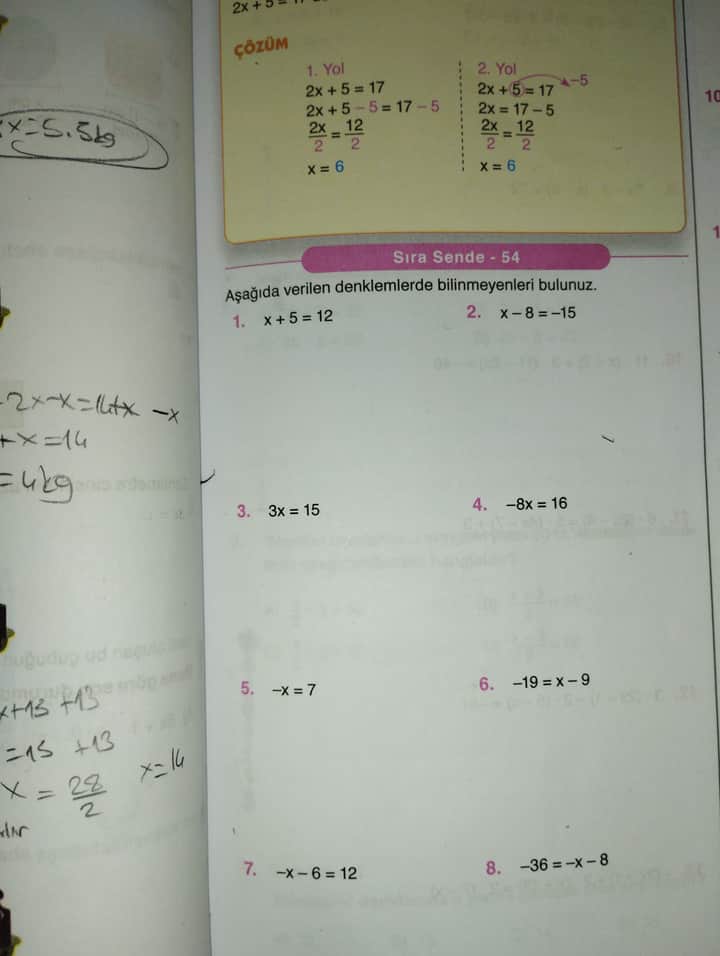 2x + 5 =
ÇÖZÜM
1. Yol
2x + 5 = 17
2x + 5 – 5 = 17 – 5
2x/2 = 12/2
x = 6
2. Yol
2x + 5 = 17 –5
2x = 17 – 5
2x/2 = 12/2
x = 6
Sıra Sende - 54
Aşağıda verilen denklemlerde bilinmeyenleri bulunuz.
1. x + 5 = 12
2. x – 8 = –15
3. 3x = 15
4. –8x = 16
5. –x = 7
6. –19 = x – 9
7. –x – 6 = 12
8. –36 = –x – 8
10
x = 5.5kg
2x-x=14+x -x
+x=14
=4kg
x+13 +13
=15 +13
x = 28/2 x=14